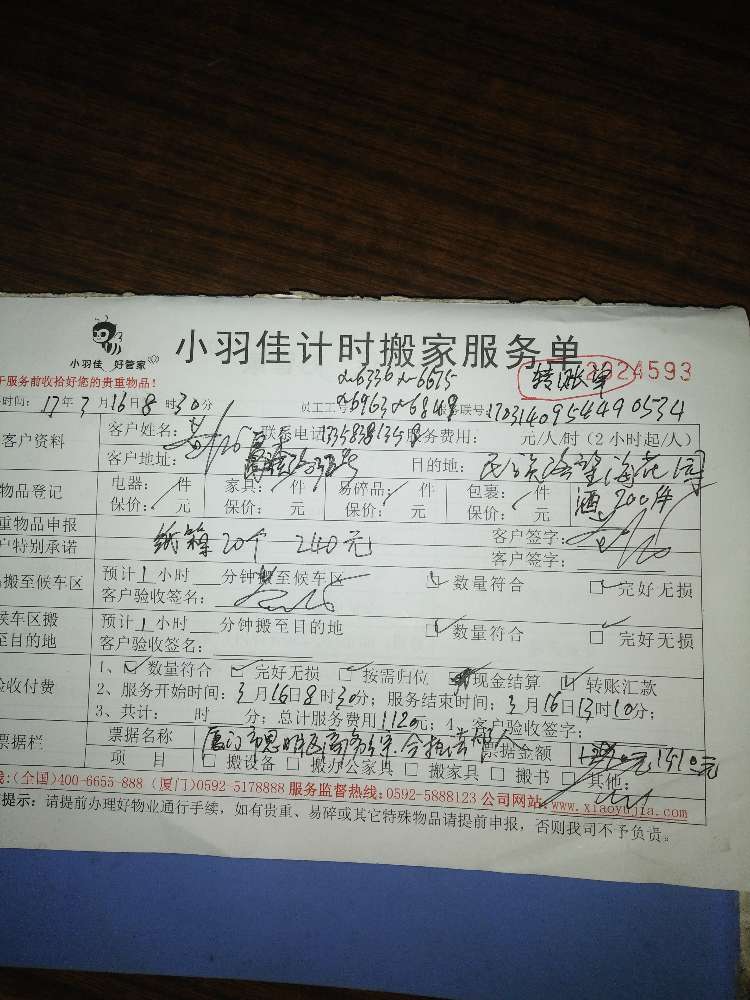 小羽佳 好管家
小羽佳计时搬家服务单
于服务前收拾好您的贵重物品!
转账单
2024593
时间: 17年3月16日8时30分
员工工号
6336 6615
6963 6848
服务联号: 17031409544490534
客户资料
客户姓名:
联系电话
服务费用: 元/人/时(2小时起/人)
客户地址:
目的地: 民族路望海花园
物品登记
电器: 件
家具: 件
易碎品: 件
包裹: 件
酒200件
保价: 元
保价: 元
保价: 元
保价: 元
重物品申报
户特别承诺
纸箱20个 240元
客户签字:
客户签字:
搬至候车区
预计1小时 分钟搬至候车区
数量符合
完好无损
客户验收签名:
候车区搬
至目的地
预计1小时 分钟搬至目的地
数量符合
完好无损
客户验收签名:
验收付费
1、 数量符合 完好无损 按需归位 现金结算 转账汇款
2、服务开始时间: 3月16日8时30分; 服务结束时间: 3月16日13时10分;
3、共计: 时 分; 总计服务费用1120元; 4、客户验收签字:
票据栏
票据名称
厦门市思明区
票据金额
1410元
项 目
搬设备 搬办公家具 搬家具 搬书 其他:
线:(全国)400-6655-888 (厦门)0592-5178888 服务监督热线: 0592-5888123 公司网站: www.xiaoyujia.com
提示: 请提前办理好物业通行手续, 如有贵重、易碎或其它特殊物品请提前申报, 否则我司不予负责。